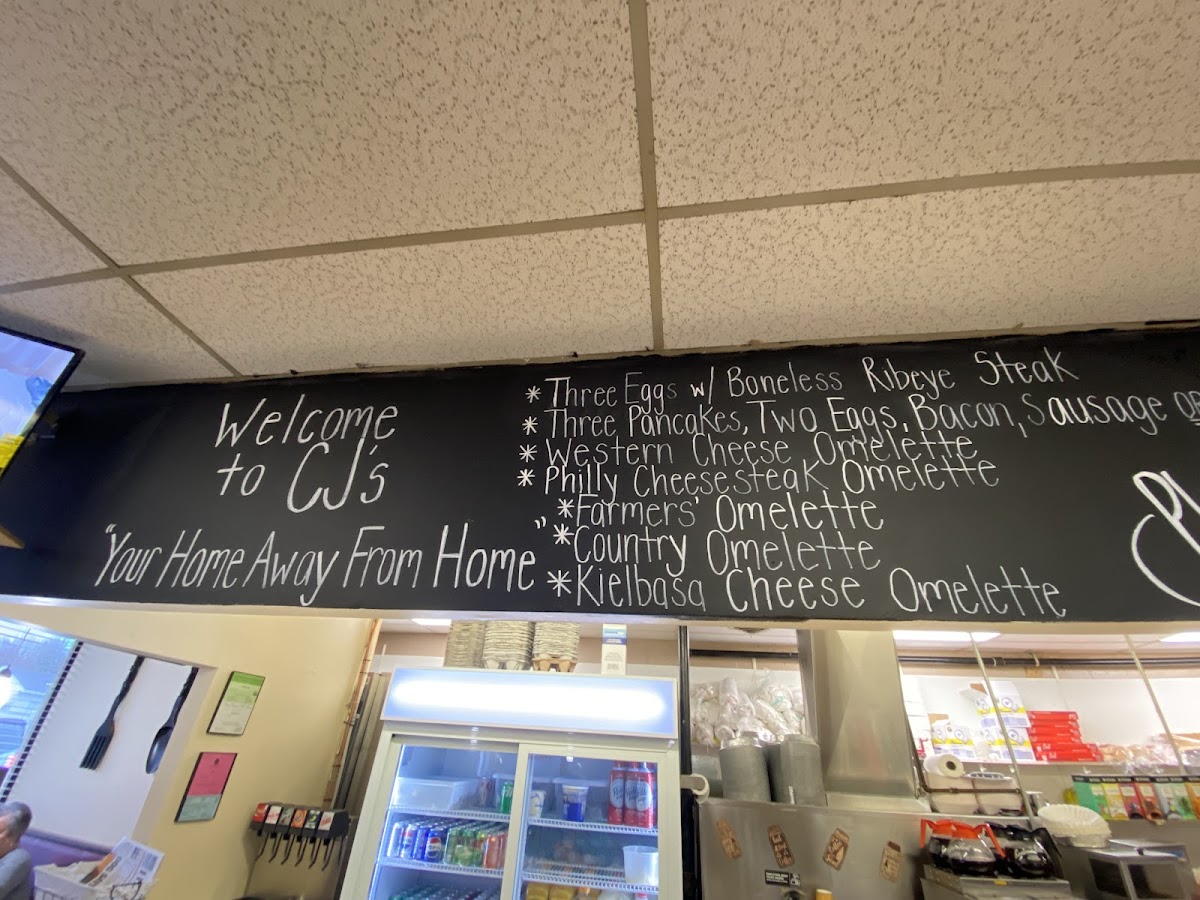 Welcome
to CJ's
"Your Home Away From Home"
* Three Eggs w/ Boneless Ribeye Steak
* Three Pancakes, Two Eggs, Bacon, Sausage
* Western Cheese Omelette
* Philly Cheesesteak Omelette
* Farmers' Omelette
* Country Omelette
* Kielbasa Cheese Omelette